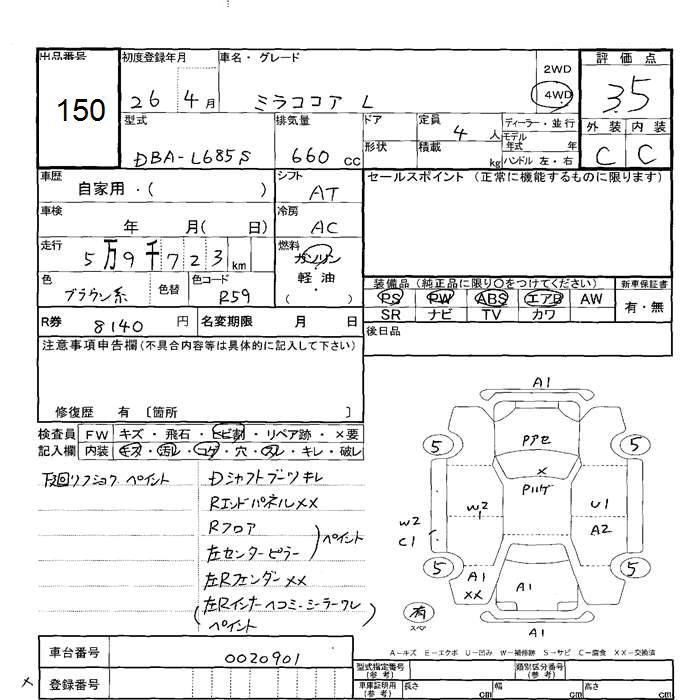 出品番号 初度登録年月 車名・グレード 2WD 4WD 評価点
150 26 4月 ミラココア L 3.5
型式 排気量 ドア 定員 4人 ディーラー・並行 外装 内装
モデル年式 年
DBA-L685S 660cc 形状 積載 kg ハンドル 左・右 C C
車歴 自家用・( ) シフト AT セールスポイント (正常に機能するものに限ります)
車検 年 月( 日) 冷房 AC
走行 5万9千723km 燃料 ガソリン
軽油
( )
色 ブラウン系 色替 色コード R59
装備品 (純正品に限り○をつけてください) 新車保証書
PS PW ABS エアB AW 有・無
SR ナビ TV カワ
R券 8140円 名変期限 月 日 後日品
注意事項申告欄(不具合内容等は具体的に記入して下さい)
修復歴 有 〔箇所 〕
検査員 FW キズ・飛石・ヒビ割・リペア跡・×要
記入欄 内装 キズ・汚レ・コゲ・穴・スレ・キレ・破レ
Dシャフトブーツキレ
RエンドパネルXX
Rフロア
左センターピラー
ペイント
左RフェンダーXX
(左Rインナーヘコミ・シーラーワレ
ペイント)
A1
Pアセ
5 5
X
W2 U1
W2 A2
C1
5 5
A1
XX
A1
有
スペア
A1
A-キズ E-エクボ U-凹み W-補修跡 S-サビ C-腐食 XX-交換済
車台番号 0020901
登録番号
型式指定番号(参考) 類別区分番号(参考)
車庫証明用(参考) 長さ cm 幅 cm 高さ cm